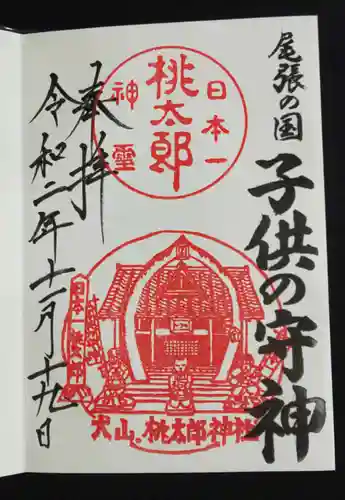 尾張の国
子供の守神
日本一
桃太郎
神霊
犬山、桃太郎神社
奉拝
令和二年十一月十九日